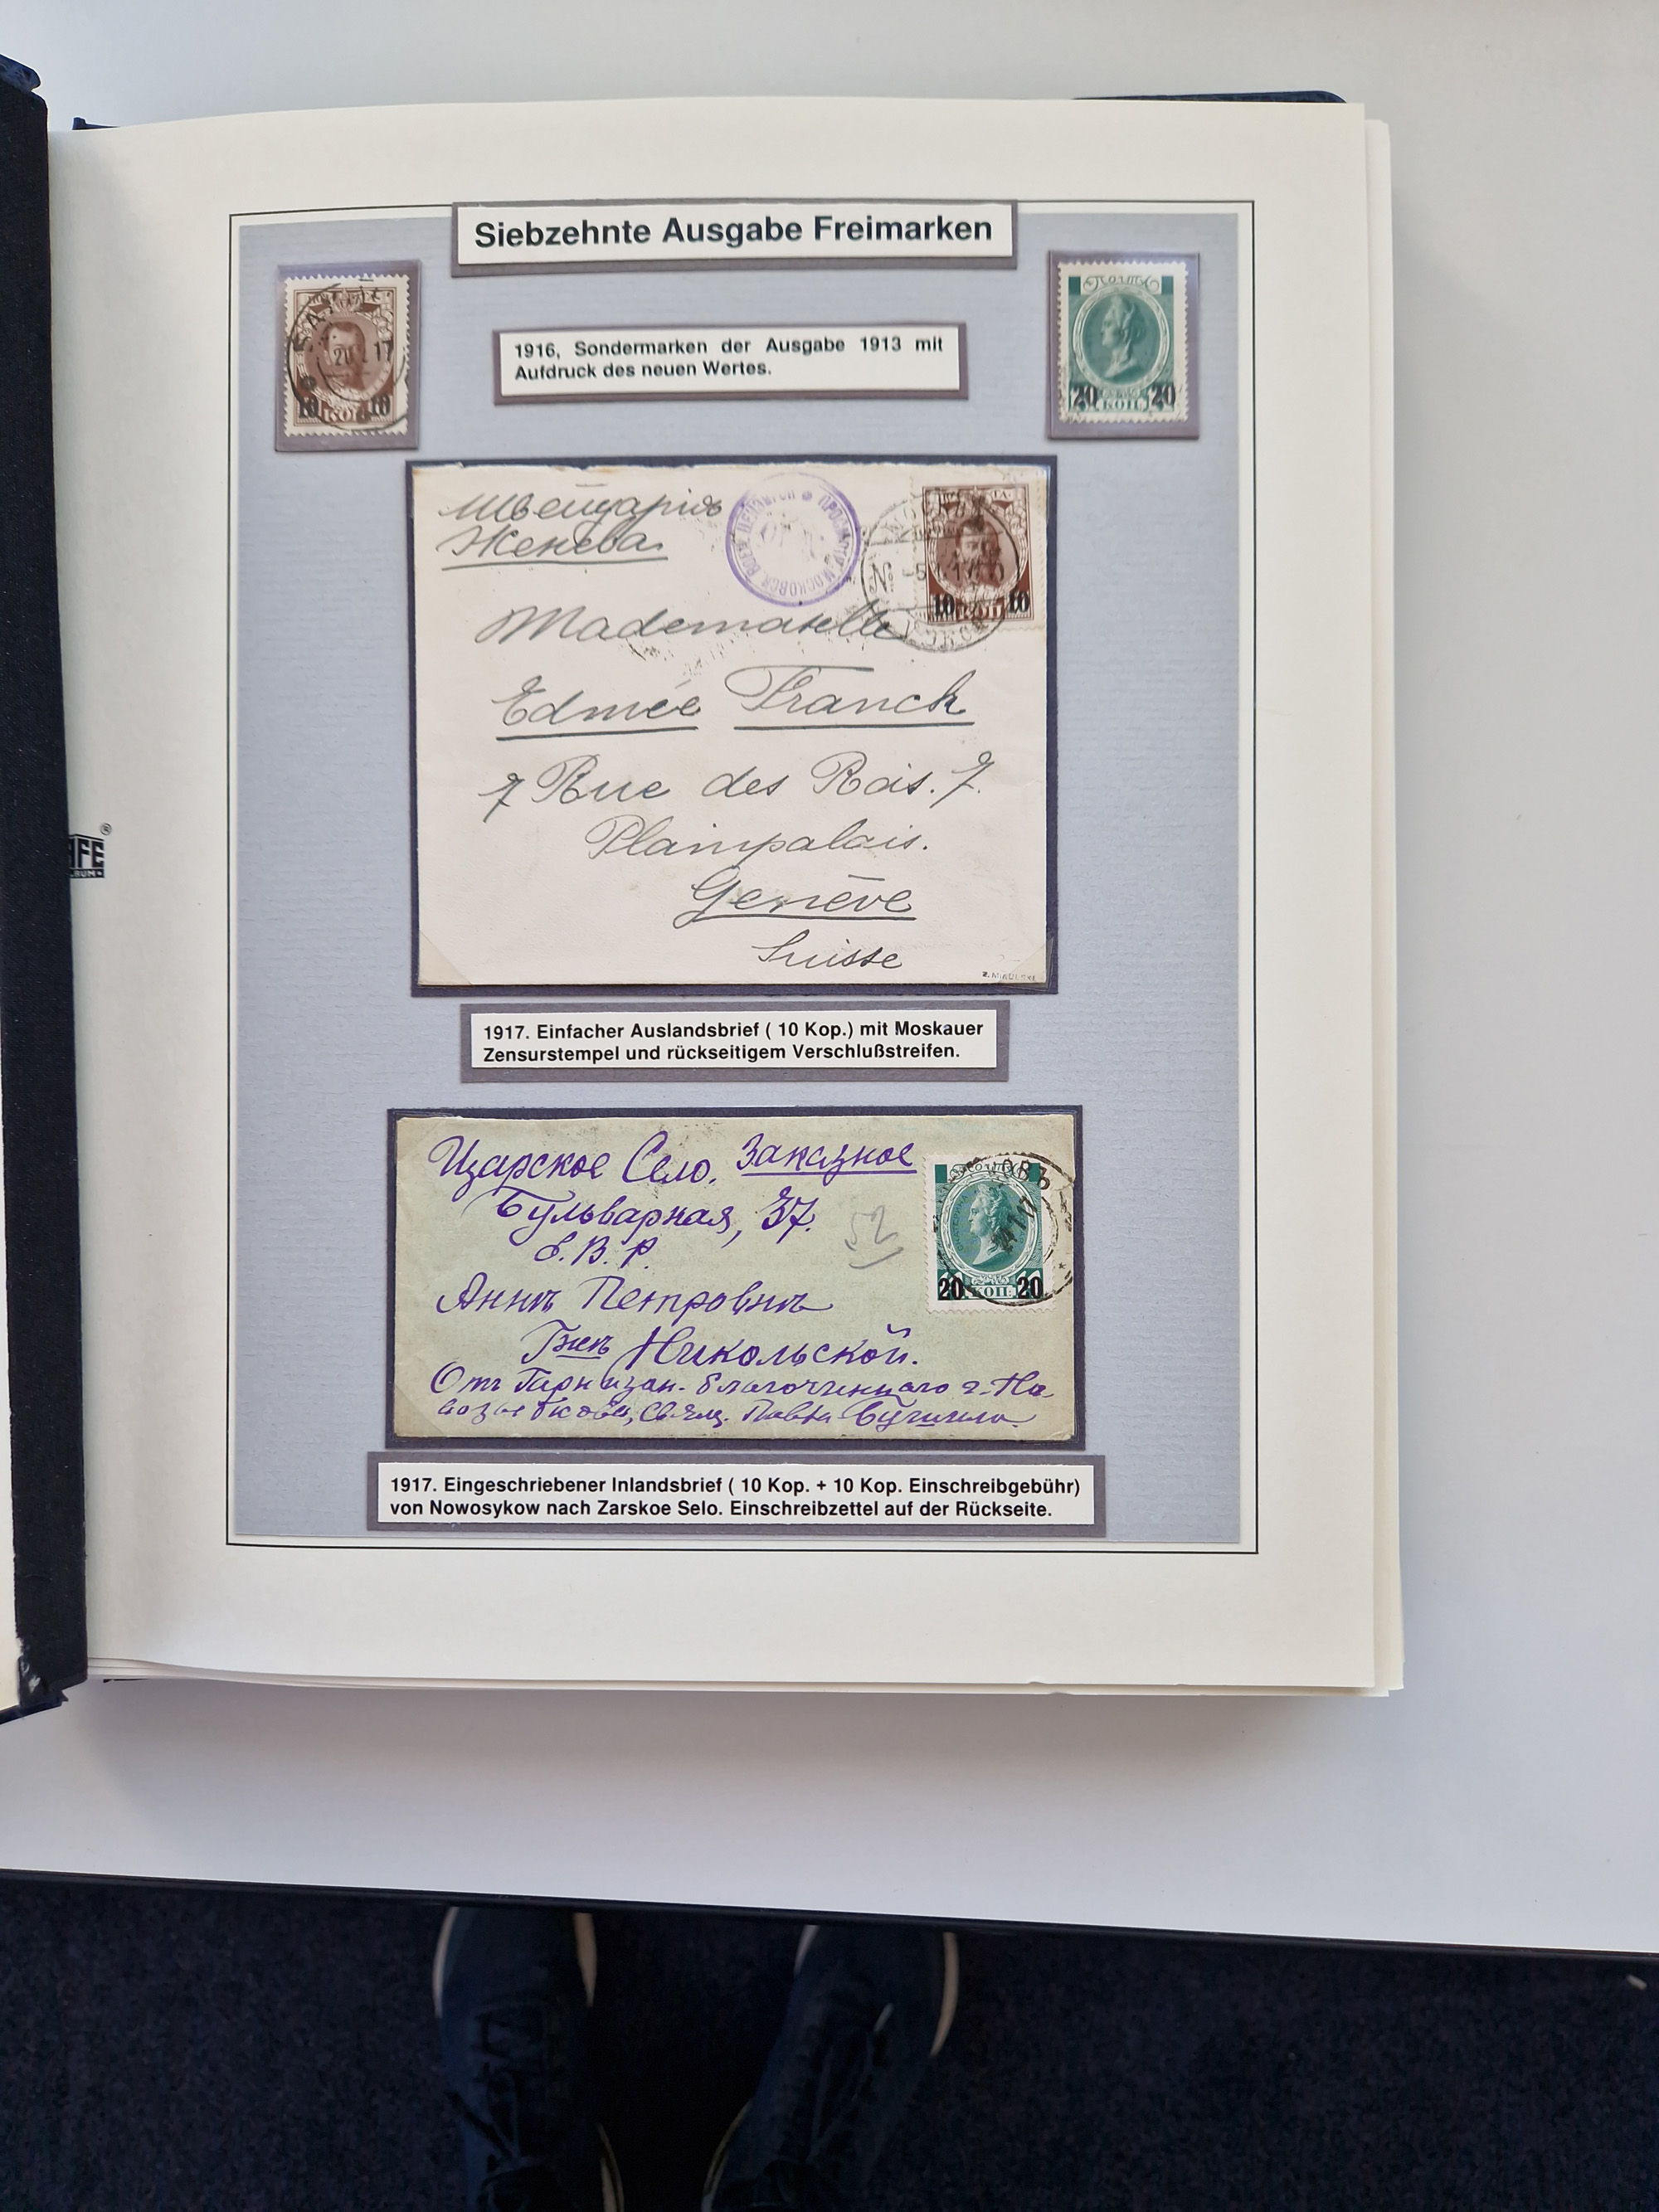 Siebzehnte Ausgabe Freimarken
1916, Sondermarken der Ausgabe 1913 mit
Aufdruck des neuen Wertes.
17
10 КОП 10
Почта
20 КОП. 20
Швейцарія
Женева.
10 10
Mademoiselle
Edmée Franck
7 Rue des Rois. 7.
Plainpalais.
Genève
Suisse
1917. Einfacher Auslandsbrief ( 10 Kop.) mit Moskauer
Zensurstempel und rückseitigem Verschlußstreifen.
Царское Село. Заказное
Бульварная, 37.
Е. В. Р.
52
20 КОП. 20
Аннѣ Петровнѣ
Гжѣ Никольской.
Отъ Гарнизон. благочиннаго г. Но
1917. Eingeschriebener Inlandsbrief ( 10 Kop. + 10 Kop. Einschreibgebühr)
von Nowosykow nach Zarskoe Selo. Einschreibzettel auf der Rückseite.